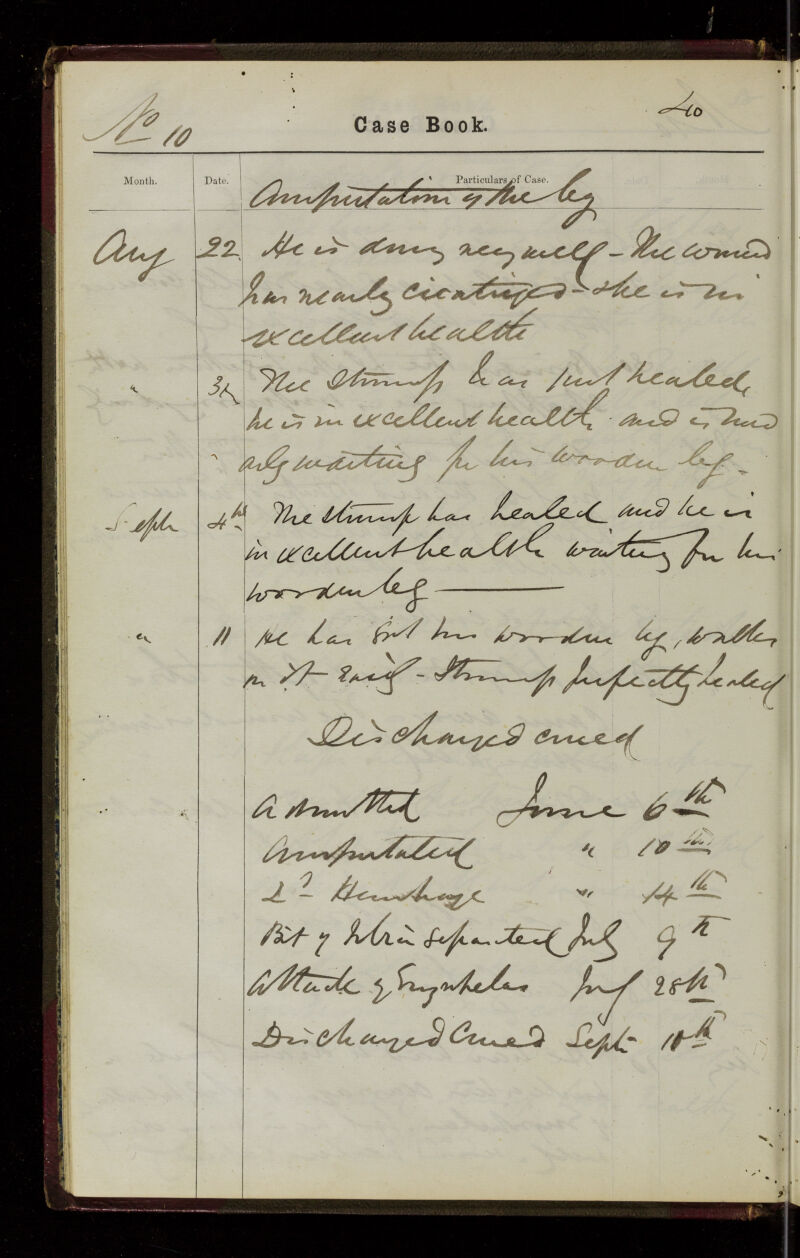 No 10
40
Case Book.
Month. Date. Particulars of Case.
Amputation of the leg
Aug 22 He is doing very well - The wound
has nearly cicatrized - he is in
excellent health
" The Stump has just healed
he is in excellent health and is now
only waiting for his wooden leg -
Sept 4th The stump has healed and he is
in excellent health waiting for his
wooden leg
" 11 He has got his wooden leg, walks
on it easily - Stump perfectly healed
Discharged cured
Admitted June 6th
Amputated " 10th
2y Hemorrhage " 14th
Bit of Tibia separated July 9th
Attack of Erysipelas July 28th
Discharged Cured Sept